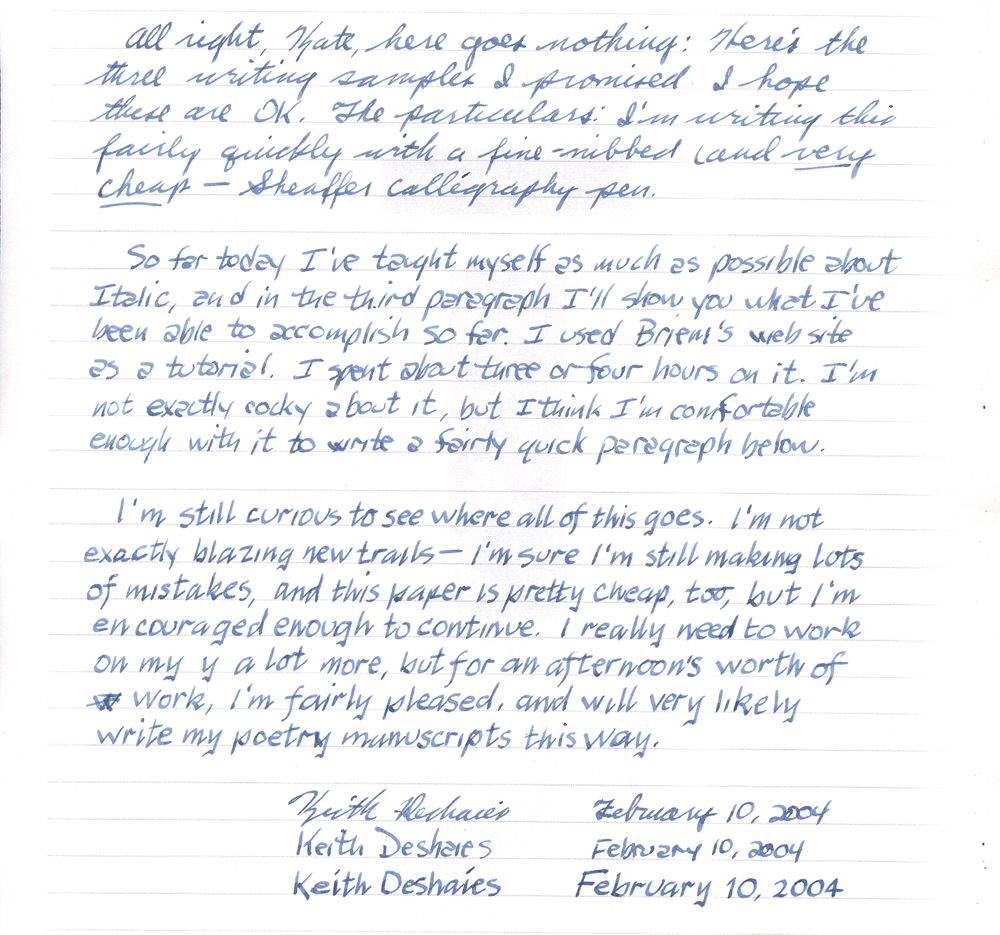 All right, Kate, here goes nothing: Here's the
three writing samples I promised. I hope
these are OK. The particulars: I'm writing this
fairly quickly with a fine-nibbed (and very
cheap — Sheaffer calligraphy pen.
So far today I've taught myself as much as possible about
Italic, and in the third paragraph I'll show you what I've
been able to accomplish so far. I used Briem's web site
as a tutorial. I spent about three or four hours on it. I'm
not exactly cocky about it, but I think I'm comfortable
enough with it to write a fairly quick paragraph below.
I'm still curious to see where all of this goes. I'm not
exactly blazing new trails — I'm sure I'm still making lots
of mistakes, and this paper is pretty cheap, too, but I'm
encouraged enough to continue. I really need to work
on my y a lot more, but for an afternoon's worth of
work, I'm fairly pleased, and will very likely
write my poetry manuscripts this way.
Keith Deshaies February 10, 2004
Keith Deshaies February 10, 2004
Keith Deshaies February 10, 2004